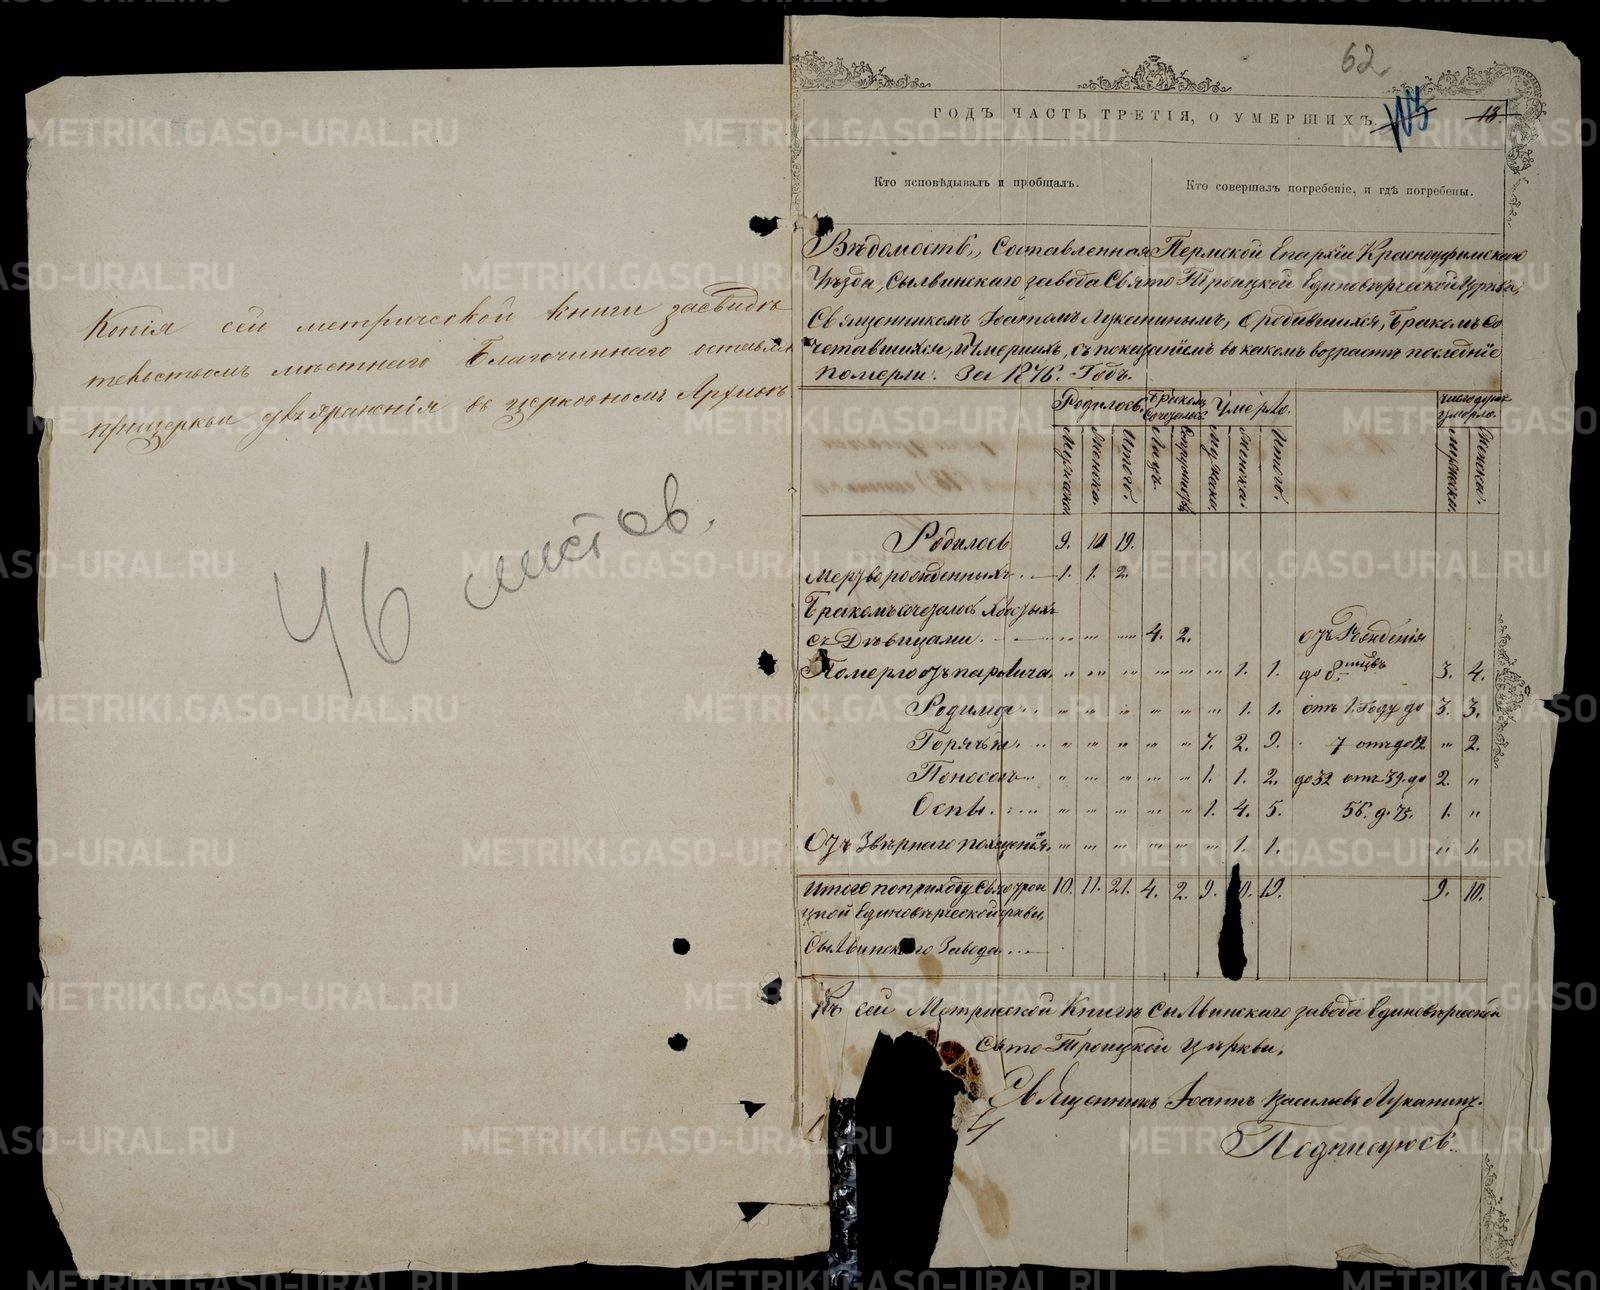 Копія сей метрической книги засвидѣ
тельстомъ мѣстнаго Благочиннаго оставлен
прицеркви для храненія въ церковномъ Архивѣ
46 листов.
62.
ГОДЪ ЧАСТЬ ТРЕТІЯ, О УМЕРШИХЪ.
103
18.
Кто исповѣдывалъ и пробщалъ.
Кто совершалъ погребеніе, и гдѣ погребены.
Вѣдомость, Составленная Пермской Епархіи Красноуфимскаго
Уѣзда, Сылвинскаго завода Свято Троицкой Единовѣрческой Церкви,
Священникомъ Іоанномъ Луканинымъ, о родившихся, Бракомъ Со
четавшихся, и Умершихъ, съ показаніемъ въ какомъ возрастѣ послѣдніе
померли. За 1876. Годъ.
Родилось. Бракомъ сочеталось Умерло. число душъ умерло.
Мужска. Женска. Итого. Лицъ. Супружествъ Мужска. Женска. Итого. Мужска. Женска.
Родилось 9. 10 19.
Мертворожденныхъ . — 1. 1. 2.
Бракомъ сочеталось Холостыхъ
съ Дѣвицами. — „ „ „ 4. 2. отъ Рожденія
Померло отъ паралича. „ „ „ „ „ „ 1. 1. до 8 мцвъ 3. 4.
Родимца . . „ „ „ „ „ „ 1. 1. отъ 1. Году до 3. 3.
Горячки. . . „ „ „ „ „ 7. 2. 9. 7 отъ до 12 „ 2.
Поносомъ „ „ „ „ „ 1. 1. 2. до 32 отъ 39. до 2. „
Оспы. . . . „ „ „ „ „ 1. 4. 5. 56. д. 75. 1. „
Отъ Звѣрнаго похищенія. „ „ „ „ „ „ 1. 1. „ 1.
Итого поприходу Святотрои 10. 11. 21. 4. 2. 9. 10. 19. 9. 10.
цкой Единовѣрческой цркви,
Сылвинскаго Завода . . . —
Къ сей Метрической Книгѣ Сылвинскаго завода Единовѣрческой
Свято Троицкой Церкви,
Священникъ Іоаннъ Васильевъ Луканинъ.
Подписуюсь.
METRIKI.GASO-URAL.RU